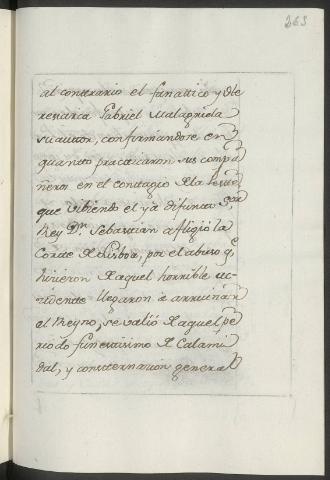 263
al contrario el fanatico y he
resiarca Gabriel Malagrida
su autor, confirmandose en
quanto practicaron sus compa
ñeros en el contagio de la Peste
que vibiendo el ya difunto S.or
Rey D.n Sebastian afligió la
Corte de Lisboa, por el abuso q.e
hicieron de aquel horrible
llegaron a arruinar
el Reyno, se valió de aquel pe
riodo funestisimo de Calami
dad, y consternacion general